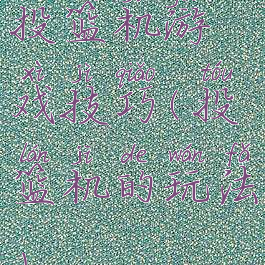 投篮机游
xì jì qiǎo tóu
戏技巧(投
lán jī de wán fǎ
篮机的玩法
)